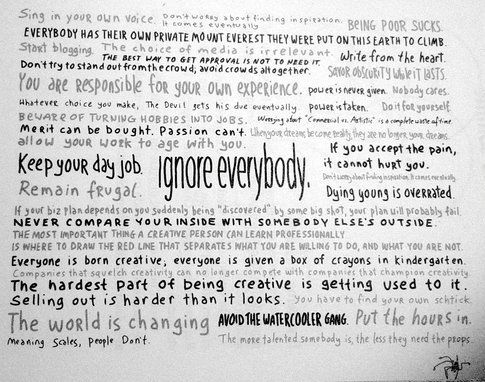 Sing in your own voice. Don't worry about finding inspiration. It comes eventually. BEING POOR SUCKS.
EVERYBODY HAS THEIR OWN PRIVATE MOUNT EVEREST THEY WERE PUT ON THIS EARTH TO CLIMB.
Start blogging. The choice of media is irrelevant. Write from the heart.
THE BEST WAY TO GET APPROVAL IS NOT TO NEED IT.
Don't try to stand out from the crowd; avoid crowds altogether. SAVOR OBSCURITY WHILE IT LASTS.
You are responsible for your own experience. power is never given. Nobody cares.
Whatever choice you make, The Devil gets his due eventually. power is taken. Do it for yourself.
BEWARE OF TURNING HOBBIES INTO JOBS. Worrying about "Commercial vs. Artistic" is a complete waste of time.
Merit can be bought. Passion can't. When your dreams become reality, they are no longer your dreams.
allow your work to age with you. If you accept the pain, it cannot hurt you.
Keep your day job. ignore everybody. Don't worry about finding inspiration. It comes eventually.
Remain frugal. Dying young is overrated.
If your biz plan depends on you suddenly being "discovered" by some big shot, your plan will probably fail.
NEVER COMPARE YOUR INSIDE WITH SOMEBODY ELSE'S OUTSIDE.
THE MOST IMPORTANT THING A CREATIVE PERSON CAN LEARN PROFESSIONALLY
IS WHERE TO DRAW THE RED LINE THAT SEPARATES WHAT YOU ARE WILLING TO DO, AND WHAT YOU ARE NOT.
Everyone is born creative; everyone is given a box of crayons in kindergarten.
Companies that squelch creativity can no longer compete with companies that champion creativity.
The hardest part of being creative is getting used to it.
Selling out is harder than it looks. You have to find your own schtick.
The world is changing AVOID THE WATERCOOLER GANG. Put the hours in.
Meaning Scales, people Don't. The more talented somebody is, the less they need the props.